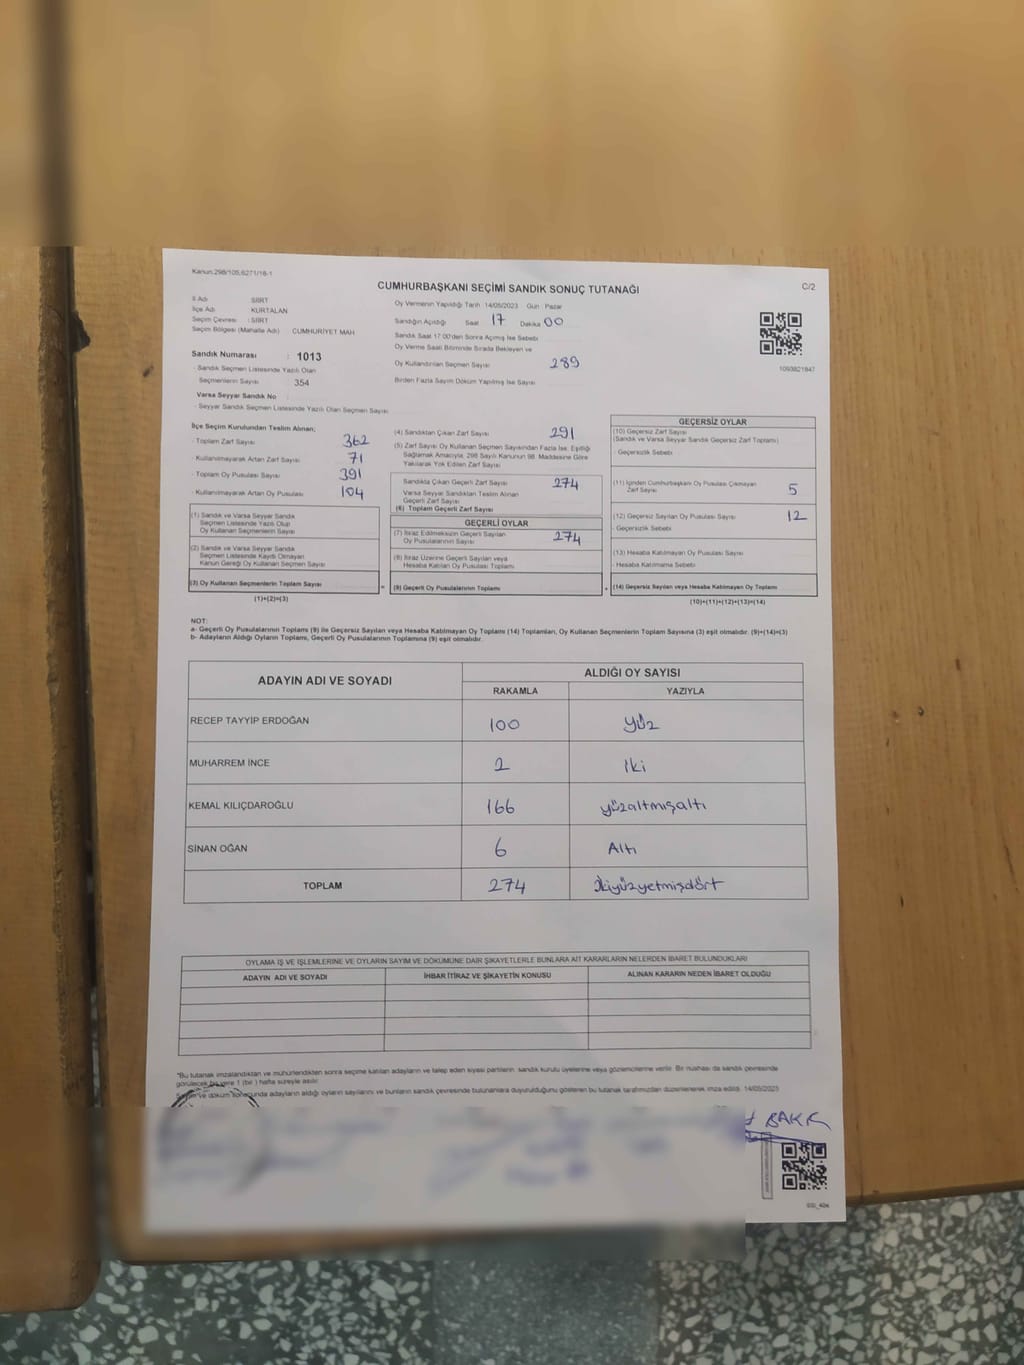 Kanun.298/105,6271/16-1
CUMHURBAŞKANI SEÇİMİ SANDIK SONUÇ TUTANAĞI
C/2
İl Adı : SİİRT
İlçe Adı : KURTALAN
Seçim Çevresi : SİİRT
Seçim Bölgesi (Mahalle Adı) : CUMHURİYET MAH
Sandık Numarası : 1013
- Sandık Seçmen Listesinde Yazılı Olan
Seçmenlerin Sayısı : 354
Varsa Seyyar Sandık No :
- Seyyar Sandık Seçmen Listesinde Yazılı Olan Seçmen Sayısı
Oy Vermenin Yapıldığı Tarih :14/05/2023 Gün : Pazar
Sandığın Açıldığı Saat 17 Dakika 00
Sandık Saat 17.00'den Sonra Açılmış İse Sebebi
Oy Verme Saati Bitiminde Sırada Bekleyen ve
Oy Kullandırılan Seçmen Sayısı 289
Birden Fazla Sayım Döküm Yapılmış İse Sayısı
1093821847
İlçe Seçim Kurulundan Teslim Alınan;
- Toplam Zarf Sayısı 362
- Kullanılmayarak Artan Zarf Sayısı 71
- Toplam Oy Pusulası Sayısı 391
- Kullanılmayarak Artan Oy Pusulası 104
(1) Sandık ve Varsa Seyyar Sandık
Seçmen Listesinde Yazılı Olup
Oy Kullanan Seçmenlerin Sayısı
(2) Sandık ve Varsa Seyyar Sandık
Seçmen Listesinde Kaydı Olmayan
Kanun Gereği Oy Kullanan Seçmen Sayısı
(3) Oy Kullanan Seçmenlerin Toplam Sayısı =
(1)+(2)=(3)
(4) Sandıktan Çıkan Zarf Sayısı 291
(5) Zarf Sayısı Oy Kullanan Seçmen Sayısından Fazla İse; Eşitliği
Sağlamak Amacıyla; 298 Sayılı Kanunun 98. Maddesine Göre
Yakılarak Yok Edilen Zarf Sayısı
Sandıkta Çıkan Geçerli Zarf Sayısı 274
Varsa Seyyar Sandıktan Teslim Alınan
Geçerli Zarf Sayısı
(6) Toplam Geçerli Zarf Sayısı
GEÇERLİ OYLAR
(7) İtiraz Edilmeksizin Geçerli Sayılan
Oy Pusulalarının Sayısı 274
(8) İtiraz Üzerine Geçerli Sayılan veya
Hesaba Katılan Oy Pusulası Toplamı
(9) Geçerli Oy Pusulalarının Toplamı +
GEÇERSİZ OYLAR
(10) Geçersiz Zarf Sayısı
(Sandık ve Varsa Seyyar Sandık Geçersiz Zarf Toplamı)
- Geçersizlik Sebebi
(11) İçinden Cumhurbaşkanı Oy Pusulası Çıkmayan
Zarf Sayısı 5
(12) Geçersiz Sayılan Oy Pusulası Sayısı 12
- Geçersizlik Sebebi
(13) Hesaba Katılmayan Oy Pusulası Sayısı
- Hesaba Katılmama Sebebi
(14) Geçersiz Sayılan veya Hesaba Katılmayan Oy Toplamı
(10)+(11)+(12)+(13)=(14)
NOT:
a- Geçerli Oy Pusulalarının Toplamı (9) ile Geçersiz Sayılan veya Hesaba Katılmayan Oy Toplamı (14) Toplamları, Oy Kullanan Seçmenlerin Toplam Sayısına (3) eşit olmalıdır. (9)+(14)=(3)
b- Adayların Aldığı Oyların Toplamı, Geçerli Oy Pusulalarının Toplamına (9) eşit olmalıdır.
ADAYIN ADI VE SOYADI
ALDIĞI OY SAYISI
RAKAMLA YAZIYLA
RECEP TAYYİP ERDOĞAN 100 yüz
MUHARREM İNCE 2 İki
KEMAL KILIÇDAROĞLU 166 yüzaltmışaltı
SİNAN OĞAN 6 Altı
TOPLAM 274 İkiyüzyetmişdört
OYLAMA İŞ VE İŞLEMLERİNE VE OYLARIN SAYIM VE DÖKÜMÜNE DAİR ŞİKAYETLERLE BUNLARA AİT KARARLARIN NELERDEN İBARET BULUNDUKLARI
ADAYIN ADI VE SOYADI İHBAR İTİRAZ VE ŞİKAYETİN KONUSU ALINAN KARARIN NEDEN İBARET OLDUĞU
*Bu tutanak imzalandıktan ve mühürlendikten sonra seçime katılan adayların ve talep eden siyasi partilerin sandık kurulu üyelerine veya gözlemcilerine verilir. Bir nüshası da sandık çevresinde
görülecek bir yere 1 (bir ) hafta süreyle asılır.
Sayım ve döküm sonucunda adayların aldığı oyların sayılarını ve bunların sandık çevresinde bulunanlara duyurulduğunu gösteren bu tutanak tarafımızdan düzenlenerek imza edildi. 14/05/2023